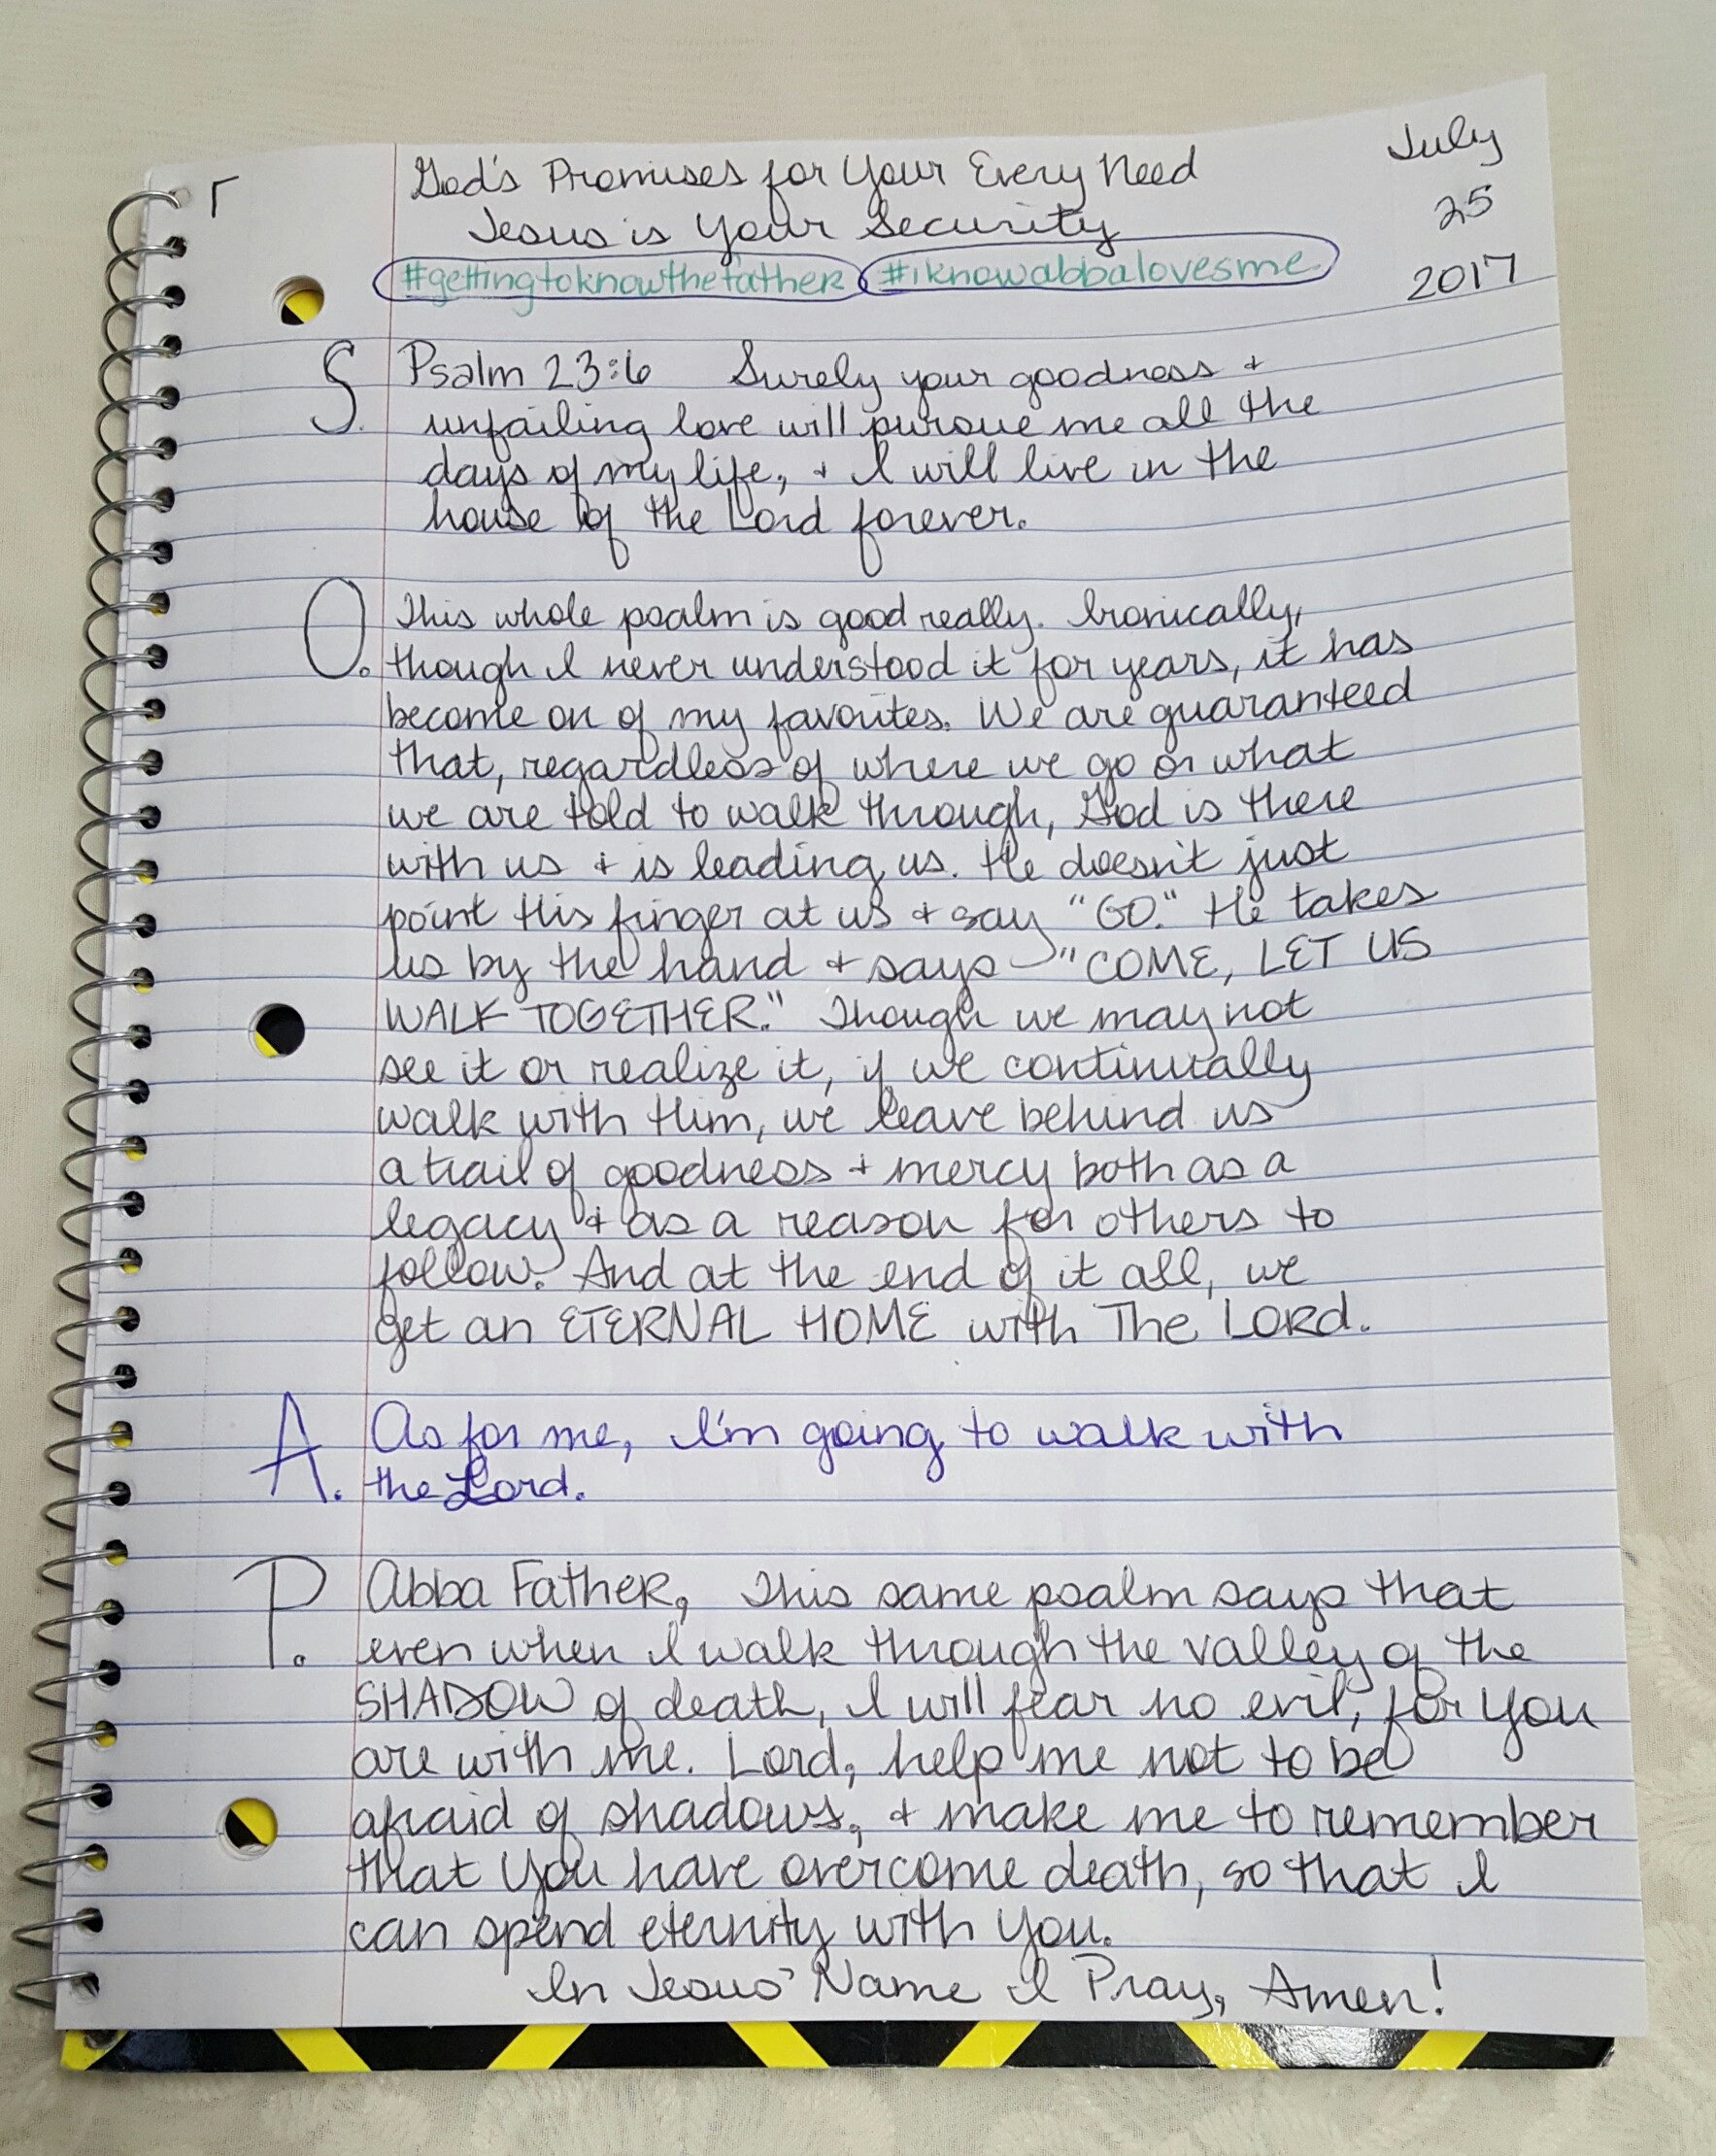 God's Promises for Your Every Need
Jesus is Your Security
#gettingtoknowthefather #iknowabbalovesme
July
25
2017
S. Psalm 23:6 Surely your goodness +
unfailing love will pursue me all the
days of my life, + I will live in the
house of the Lord forever.
O. This whole psalm is good really. Ironically,
though I never understood it for years, it has
become on of my favorites. We are guaranteed
that, regardless of where we go or what
we are told to walk through, God is there
with us + is leading us. He doesn't just
point His finger at us + say "GO." He takes
us by the hand + says "COME, LET US
WALK TOGETHER." Though we may not
see it or realize it, if we continually
walk with Him, we leave behind us
a trail of goodness + mercy both as a
legacy + as a reason for others to
follow. And at the end of it all, we
get an ETERNAL HOME with The LORD.
A. As for me, I'm going to walk with
the Lord.
P. Abba Father, This same psalm says that
even when I walk through the valley of the
SHADOW of death, I will fear no evil, for You
are with me. Lord, help me not to be
afraid of shadows, + make me to remember
that You have overcome death, so that I
can spend eternity with You.
In Jesus' Name I Pray, Amen!